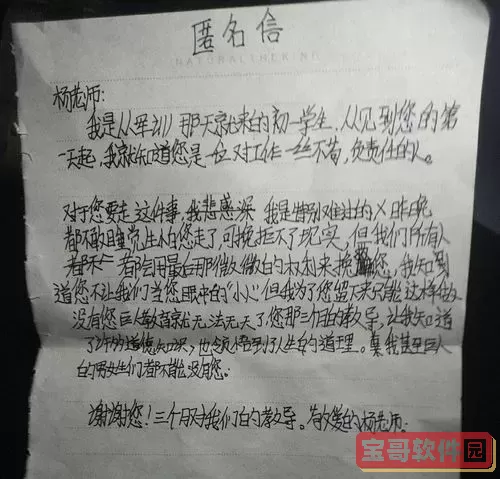 匿名信
NATURALTHEKING
杨老师:
我是从军训那天就来的初一学生,从见到您的第
一天起,我就知道您是一位对工作一丝不苟,负责任的人。
对于您要走这件事,我悲感深 我是特别难过的 昨晚
都不敢睡觉生怕您走了,可挽拒不了现实,但我们所有人
都会用最后那微微的权利来挽您,我知到
道您不让我们当您眼中的“小人”但我为了您留下来只能这样做
没有您巨人教育就无法无天了您那三个月的教导,让我知道
了许为道德知识,也领悟到了人生的道理。真我甚至巨人
的男女生们都不能没有您.
谢谢您!三个月对我们的教导。敬爱的杨老师.
宝哥软件园